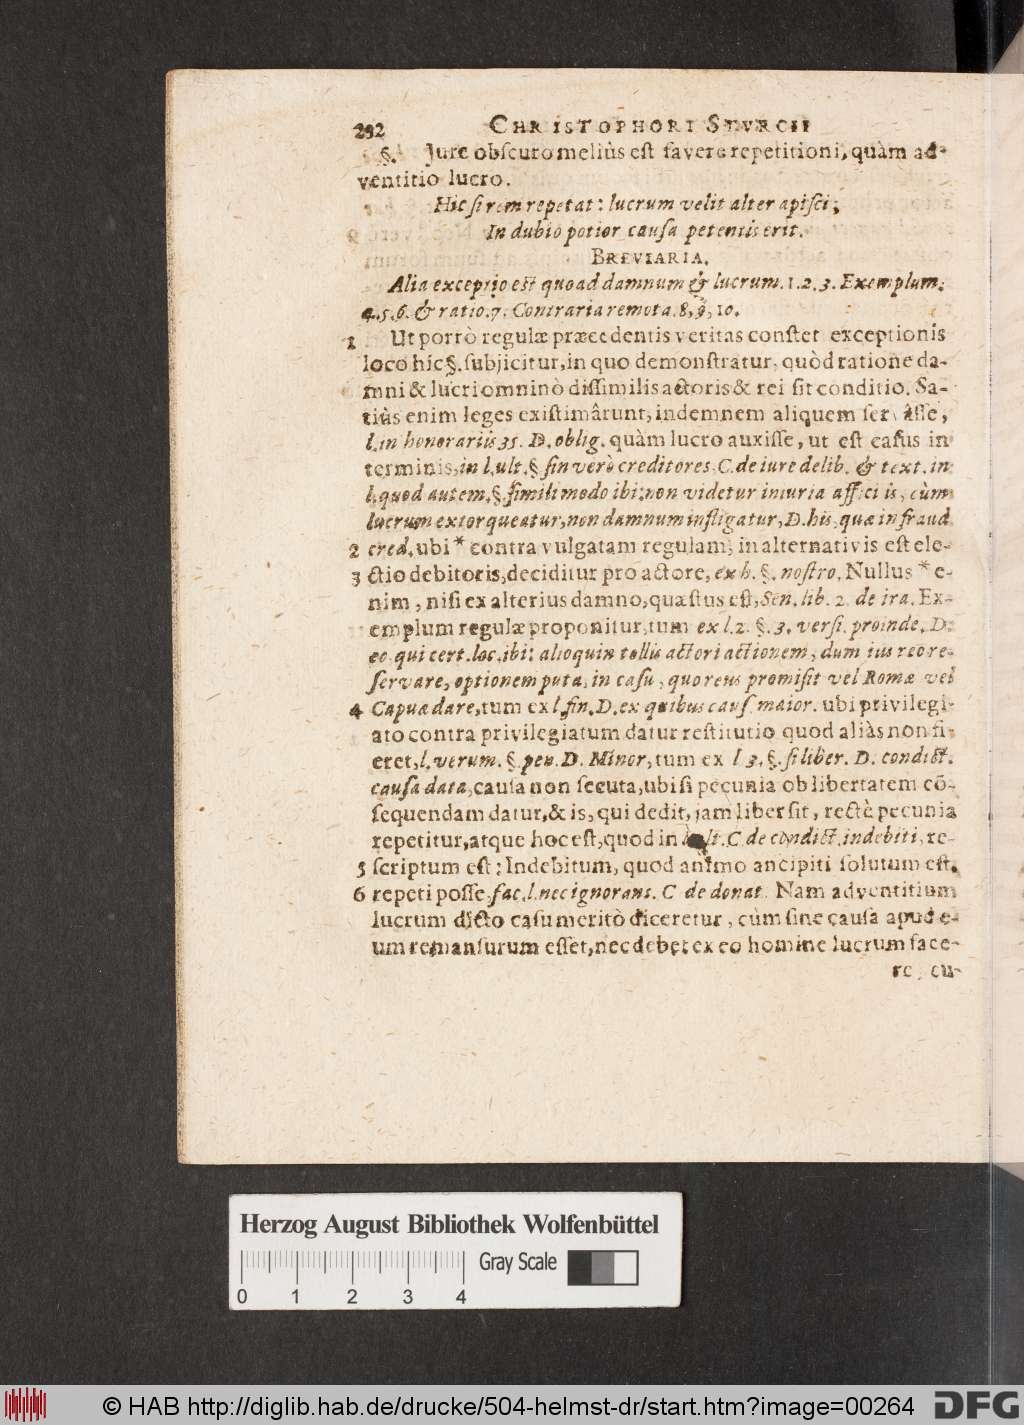 292 CHRISTOPHORI STVRCII
§. Jure obscuro meliùs est favere repetitioni, quàm ad-
ventitio lucro.
Hic si rem repetat: lucrum velit alter apisci,
In dubio potior causa petentis erit.
BREVIARIA.
Alia exceptio est quoad damnum & lucrum. 1. 2. 3. Exemplum.
4. 5. 6. & ratio. 7. Contraria remota. 8, 9, 10.
1 Ut porrò regulæ præcedentis veritas constet exceptionis
loco hic §. subjicitur, in quo demonstratur, quòd ratione da-
mni & lucri omninò dissimilis actoris & rei sit conditio. Sa-
tiùs enim leges existimârunt, indemnem aliquem servâsse,
l. in honorariis 35. D. oblig. quàm lucro auxisse, ut est casus in
terminis, in l. ult. §. sin verò creditores. C. de iure delib. & text. in
l. quod autem. §. simili modo ibi: non videtur iniuria affici is, cùm
lucrum extorqueatur, non damnum infligatur, D. his, quæ in fraud
2 cred. ubi * contra vulgatam regulam, in alternativis est ele-
3 ctio debitoris, deciditur pro actore, ex h. §. nostro. Nullus * e-
nim, nisi ex alterius damno, quæstus est, Sen. lib. 2. de ira. Ex-
emplum regulæ proponitur, tum ex l. 2. §. 3. versi. proinde. D.
eo qui cert. loc. ibi: alioquin tollis actori actionem, dum ius reo re-
servare, optionem puta, in casu, quo reus promisit vel Romæ vel
4 Capuæ dare, tum ex l. fin. D. ex quibus caus. maior. ubi privilegi-
ato contra privilegiatum datur restitutio quod aliàs non fi-
eret, l. verum. §. pen. D. Minor, tum ex l 3. §. si liber. D. condict.
causa data, causa non secuta, ubi si pecunia ob libertatem cō-
sequendam datur, & is, qui dedit, jam liber sit, rectè pecunia
repetitur, atque hoc est, quod in lt. C de condict. indebiti, re-
5 scriptum est: Indebitum, quod animo ancipiti solutum est,
6 repeti posse, fac. l. nec ignorans. C de donat. Nam adventitium
lucrum dicto casu meritò diceretur, cùm sine causa apud e-
um remansurum esset, nec debet ex eo homine lucrum face-
re, cu-
Herzog August Bibliothek Wolfenbüttel
Gray Scale
0 1 2 3 4
© HAB http://diglib.hab.de/drucke/504-helmst-dr/start.htm?image=00264
DFG